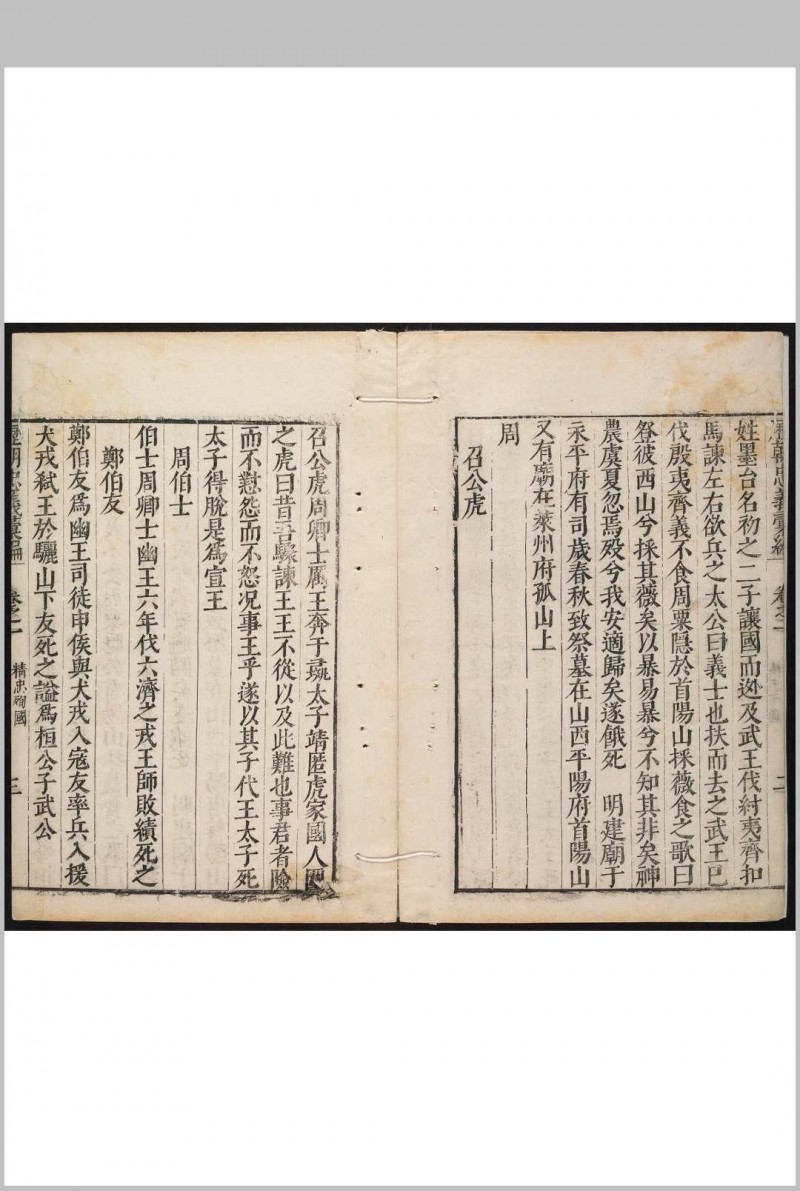 姓墨台名初之二子讓國而逃及武王伐紂夷齊扣
馬諫左右欲兵之太公曰義士也扶而去之武王已
伐殷夷齊義不食周粟隱於首陽山採薇食之歌曰
登彼西山兮採其薇矣以暴易暴兮不知其非矣神
農虞夏忽焉歿兮我安適歸矣遂餓死 明建廟于
永平府有司歲春秋致祭墓在山西平陽府首陽山
又有廟在萊州府孤山上
周
召公虎
召公虎周卿士厲王奔于彘太子靖匿虎家國人圍
之虎曰昔吾驟諫王王不從以及此難也事君者險
而不懟怨而不怒况事王乎遂以其子代王太子死
太子得脫是爲宣王
周伯士
伯士周卿士幽王六年伐六濟之戎王師敗績死之
鄭伯友
鄭伯友爲幽王司徒申侯與犬戎入寇友率兵入援
犬戎弑王於驪山下友死之謚爲桓公子武公
歷朝忠義彙編 卷之一 精忠殉國 三